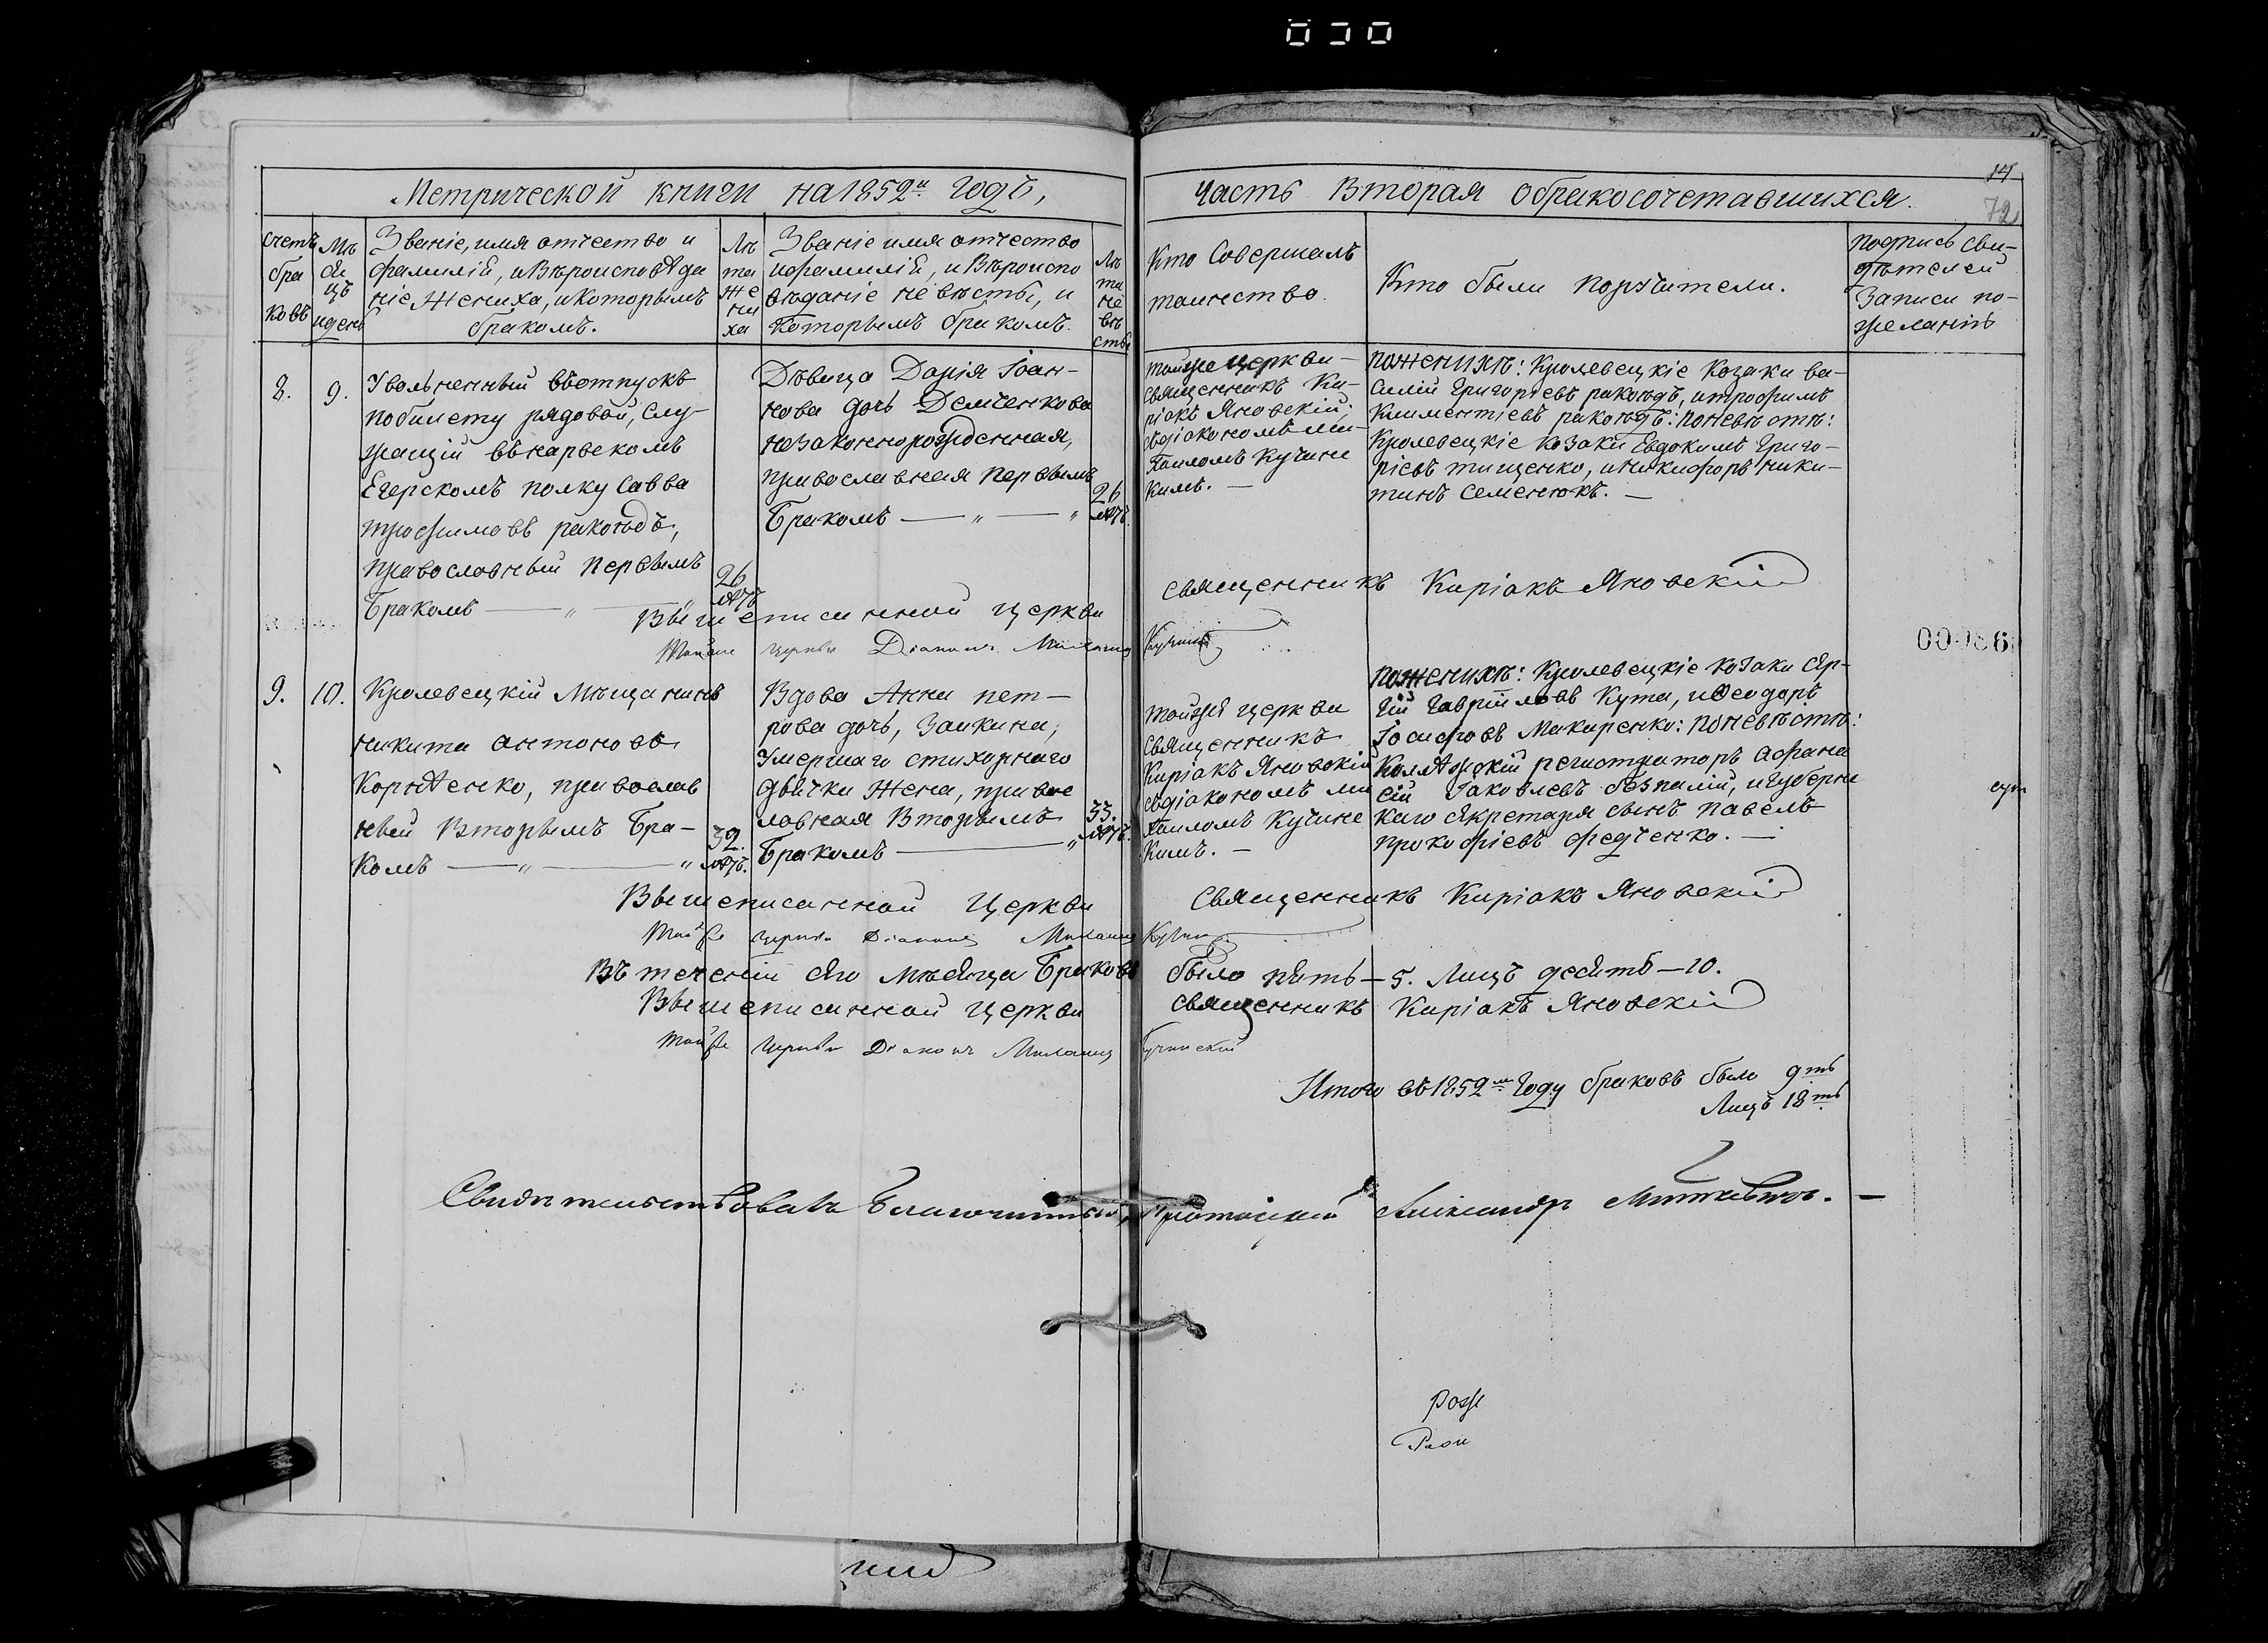 Метрической книги на 1852й годъ,
Часть вторая о бракосочетавшихся.
14
72
Счетъ браковъ
Мѣсяцъ и день
Званіе, имя отчество и
фамилій, и вѣроисповѣда
ніе жениха, и которымъ
бракомъ.
Лѣта жениха
Званіе имя отчество
и фамилій, и вѣроиспо
вѣданіе невѣсты, и
которымъ бракомъ.
Лѣта невѣсты
Кто совершалъ
таинство.
Кто были поручители.
подпись сви-
дѣтелей
записи по-
желанію
8.
9.
Увольненный въ отпускъ
по билету рядовой, слу-
жащій въ карвскомъ
Егерскомъ полку Савва
трофимовъ ракоѣдъ,
православный первымъ
Бракомъ — „ — „
26
лѣтъ
Дѣвица Дарія Іоан-
нова дочь Демченкова
незаконнорожденная,
православная первымъ
Бракомъ — „ — „
26
лѣтъ.
тойже церкви
священникъ Ки-
ріакъ Яновскій;
съ діакономъ Ми-
хаиломъ Кучинс
кимъ. —
по женихѣ: Кролевецкіе козаки ва-
силій Григоріевъ ракоѣдъ, и трофимъ
Климентіевъ ракоѣдъ: по невѣстѣ:
Кролевецкіе козаки Евдокимъ Григо-
ріевъ тищенко, и никифоръ ники-
тинъ семенюкъ. —
Вышеписанной церкви священникъ Киріакъ Яновскій
Тойже церкви Діаконъ Михаилъ Кучинс
000069
9.
10.
Кролевецкій мѣщанинъ
никита антоновъ
Корнѣенко, православ
ный вторымъ Бра-
комъ — „ — „
32.
лѣтъ.
Вдова Анна пет-
рова дочь, Заикина,
умершаго стихарнаго
дьячка жена, правос
лавная вторымъ
Бракомъ — „
33.
лѣтъ.
тойже церкви
священникъ
Киріакъ Яновскій
съ діакономъ ми
хаиломъ Кучинс
кимъ. —
по женихѣ: Кролевецкіе козаки Сер-
гій Гавріиловъ Кута, и Ѳеодоръ
Іосифовъ Макаренко: по невѣстѣ:
Колляжскій регистраторъ Афана
сій Іаковлевъ безпалій, и губернс
каго Секретаря сынъ павелъ
прокофіевъ федченко. —
Вышеписанной Церкви священникъ Киріакъ Яновскій
Тойже церкви Діаконъ Михаилъ Кучин
Въ теченіи сего мѣсяца Браковъ было пять — 5. Лицъ десять — 10.
Вышеписанной церкви священникъ Киріакъ Яновскій
Тойже Церкви Діаконъ Михаилъ Кучинскій
Итого въ 1852м году браковъ было 9ть
Лицъ 18ть
Свидѣтельствовалъ Благочинный, Протоіерей Александръ